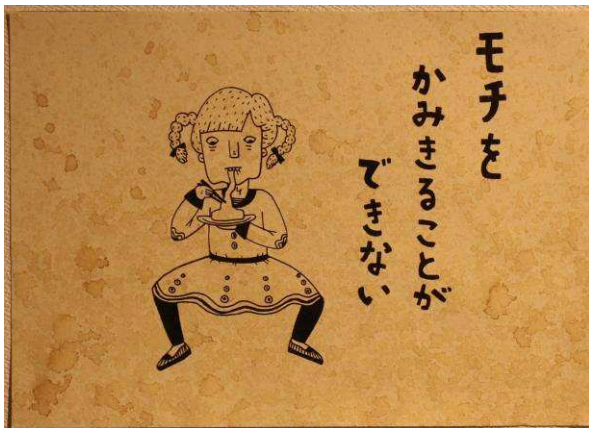 モチを
かみきることが
できない